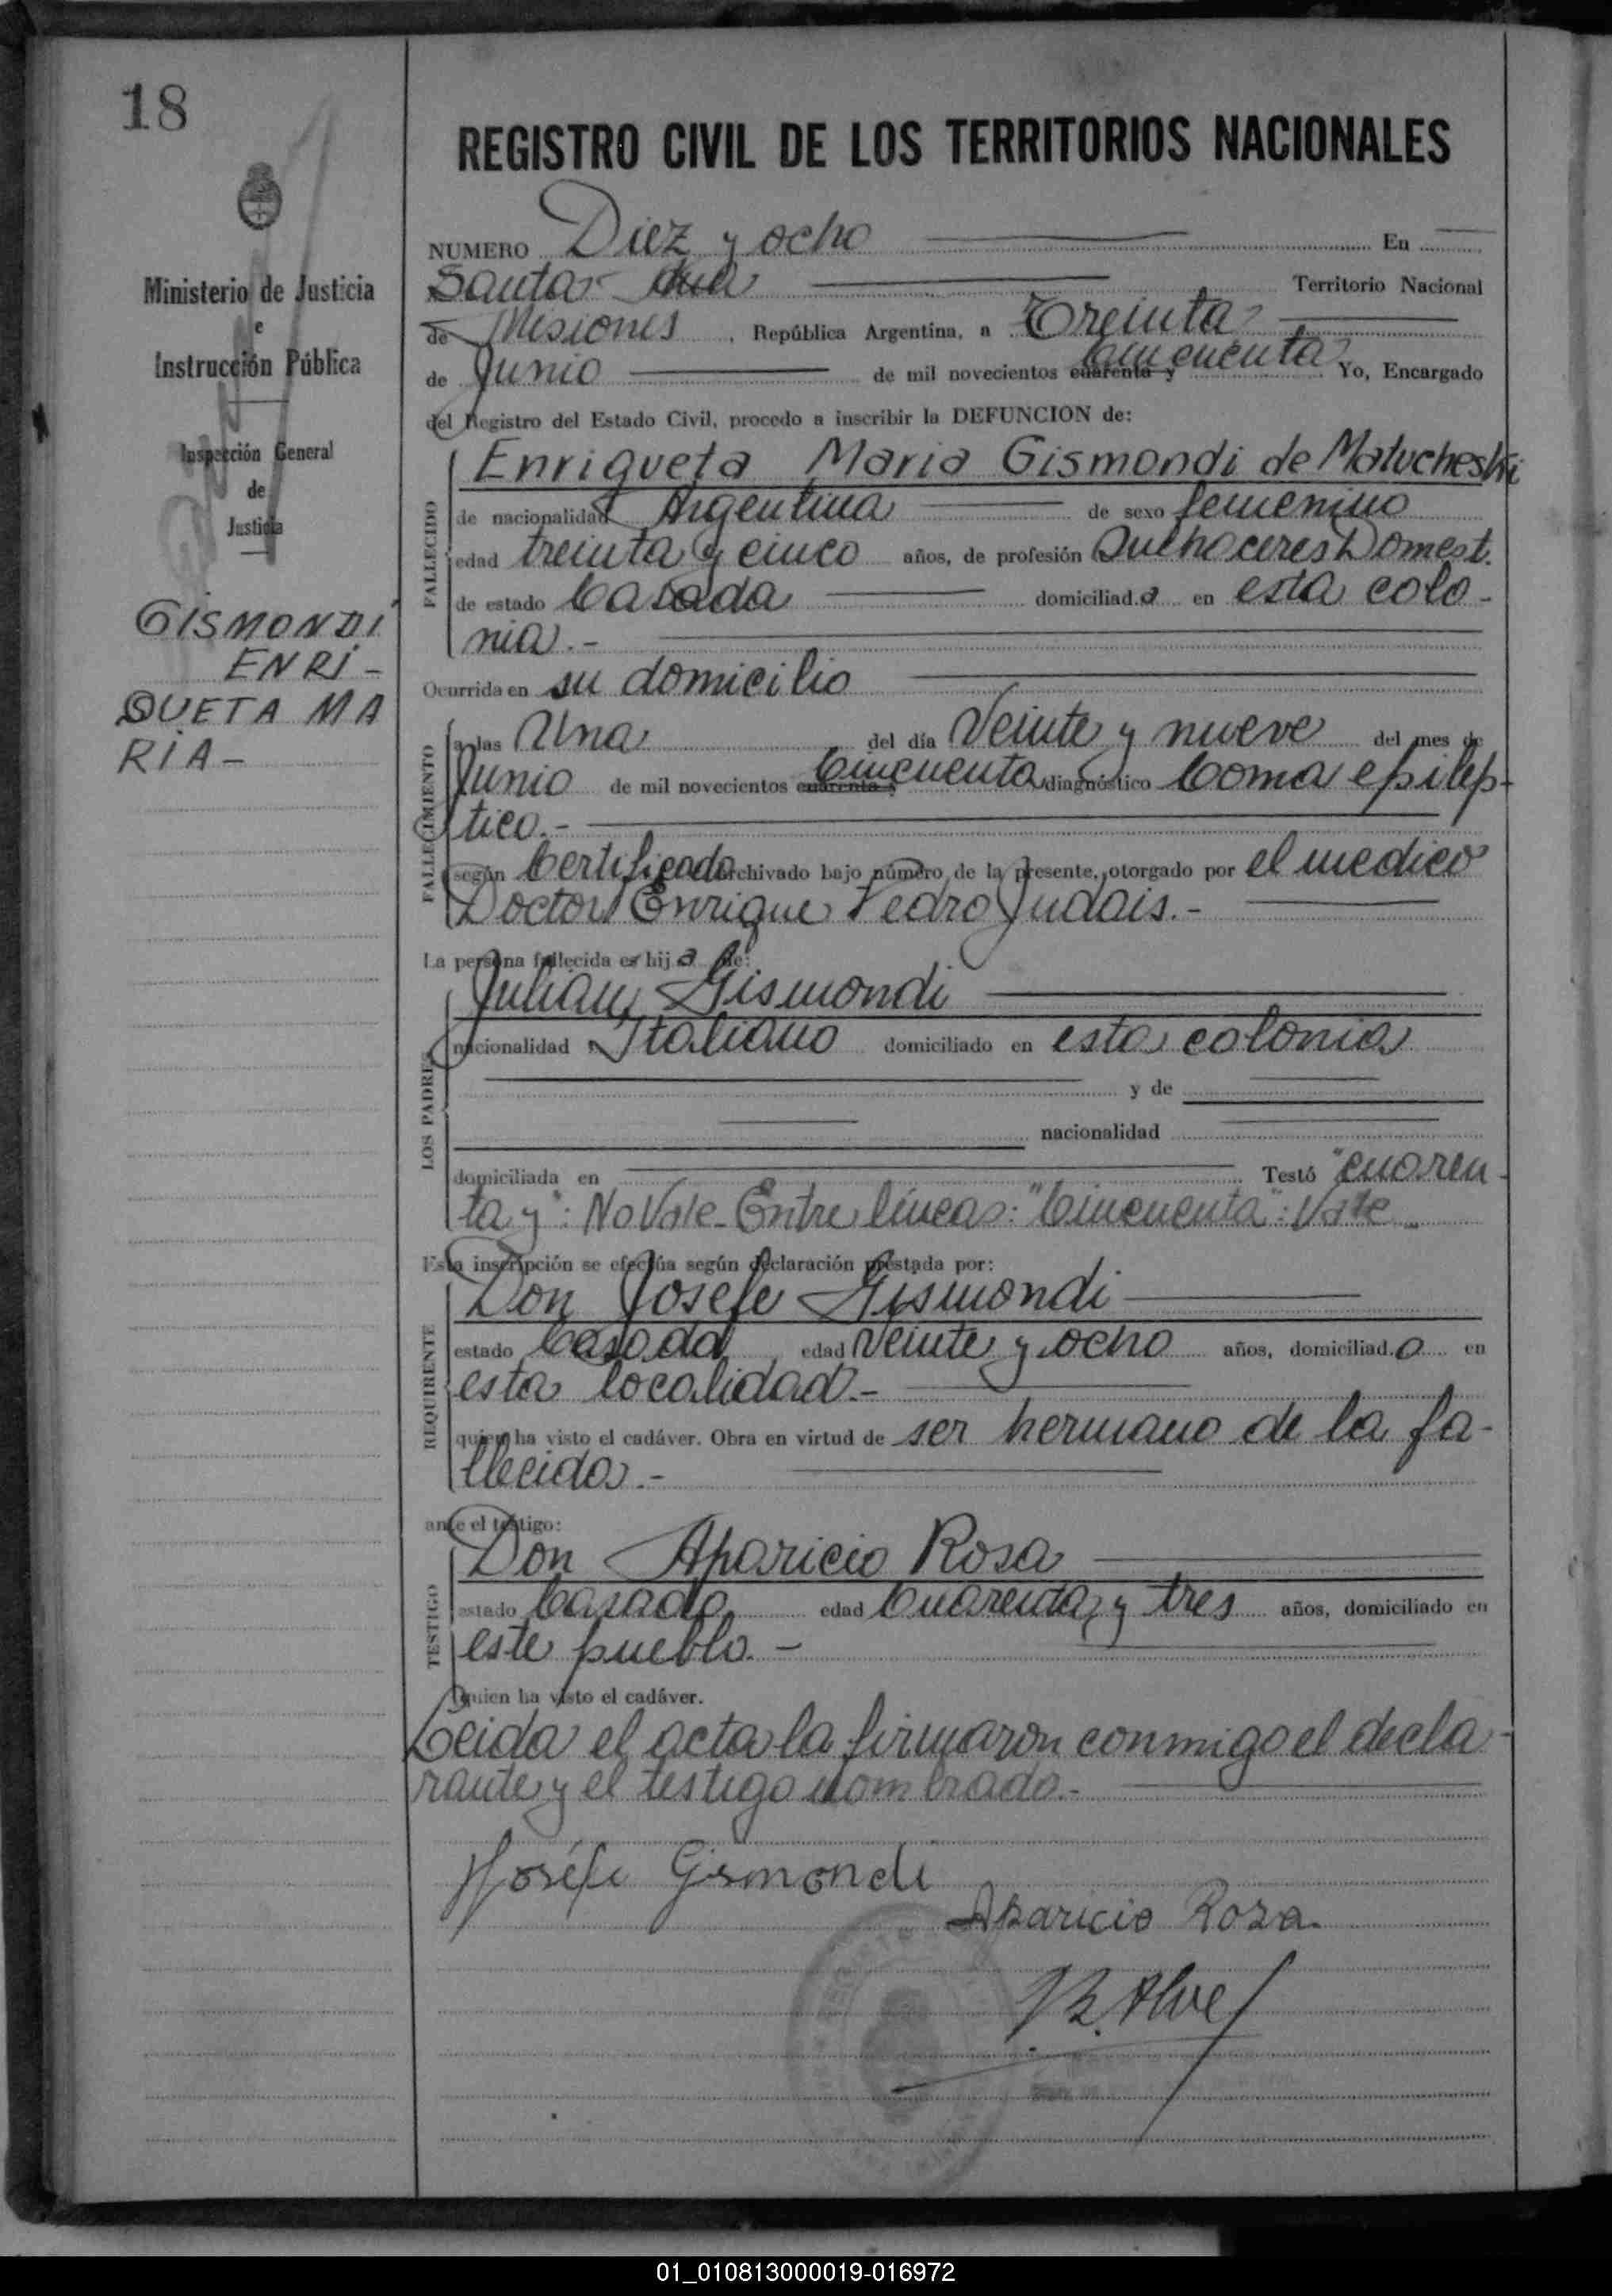 18
Ministerio de Justicia
e
Instrucción Pública
Inspección General
de
Justicia
GISMONDI
ENRI-
QUETA MA
RIA-
REGISTRO CIVIL DE LOS TERRITORIOS NACIONALES
NUMERO Diez y ocho En
Santa Ana Territorio Nacional
de Misiones, República Argentina, a Treinta
de Junio de mil novecientos cuarenta y Cincuenta Yo, Encargado
del Registro del Estado Civil, procedo a inscribir la DEFUNCION de:
FALLECIDO
Enriqueta Maria Gismondi de Matucheski
de nacionalidad Argentina de sexo femenino
edad treinta y cinco años, de profesión Quehaceres Domest.
de estado Casada domiciliad.a en esta colo-
nia.-
Ocurrida en su domicilio
FALLECIMIENTO
a las Una del día Veinte y nueve del mes de
Junio de mil novecientos cuarenta y Cincuenta diagnóstico Coma epilep-
tico.-
según Certificado archivado bajo número de la presente, otorgado por el medico
Doctor Enrique Pedro Judais.-
La persona fallecida es hij a de:
LOS PADRES
Julian Gismondi
nacionalidad Italiano domiciliado en esta colonia
y de
nacionalidad
domiciliada en Testó "cuaren-
ta y": No Vale. Entre líneas: "Cincuenta": Vale
Esta inscripción se efectúa según declaración prestada por:
REQUIRENTE
Don Josefe Gismondi
estado Casado edad Veinte y ocho años, domiciliad.o en
esta localidad.-
quien ha visto el cadáver. Obra en virtud de ser hermano de la fa-
llecida.-
ante el testigo:
TESTIGO
Don Aparicio Rosa
estado Casado edad Cuarenta y tres años, domiciliado en
este pueblo.-
quien ha visto el cadáver.
Leida el acta la firmaron conmigo el decla-
rante y el testigo nombrado.-
Joséfe Gismondi
Aparicio Rosa.
01_010813000019-016972